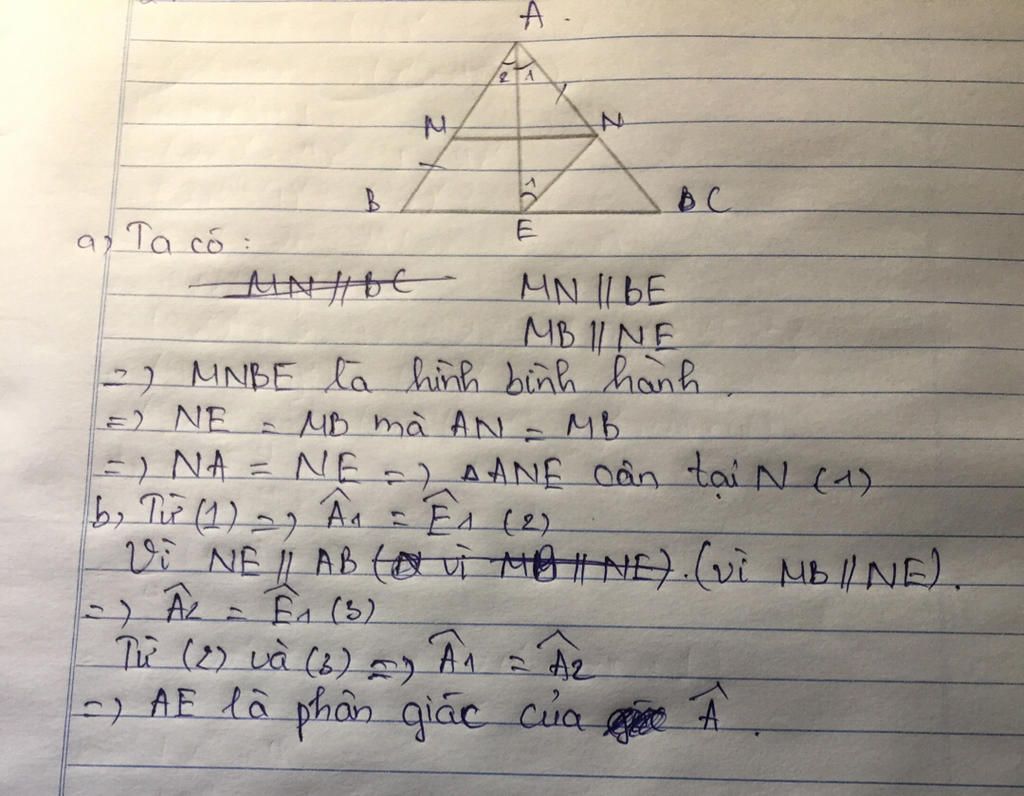 A.
2 1
M N
1
B E C
a, Ta có :
MN // BC MN // BE
MB // NE
=> MNBE là hình bình hành.
=> NE = MB mà AN = MB
=> NA = NE => ΔANE cân tại N (1)
b, Từ (1) => Â1 = Ê1 (2)
Vì NE // AB (vì MB // NE). (vì MB // NE).
=> Â2 = Ê1 (3)
Từ (2) và (3) => Â1 = Â2
=> AE là phân giác của Â.